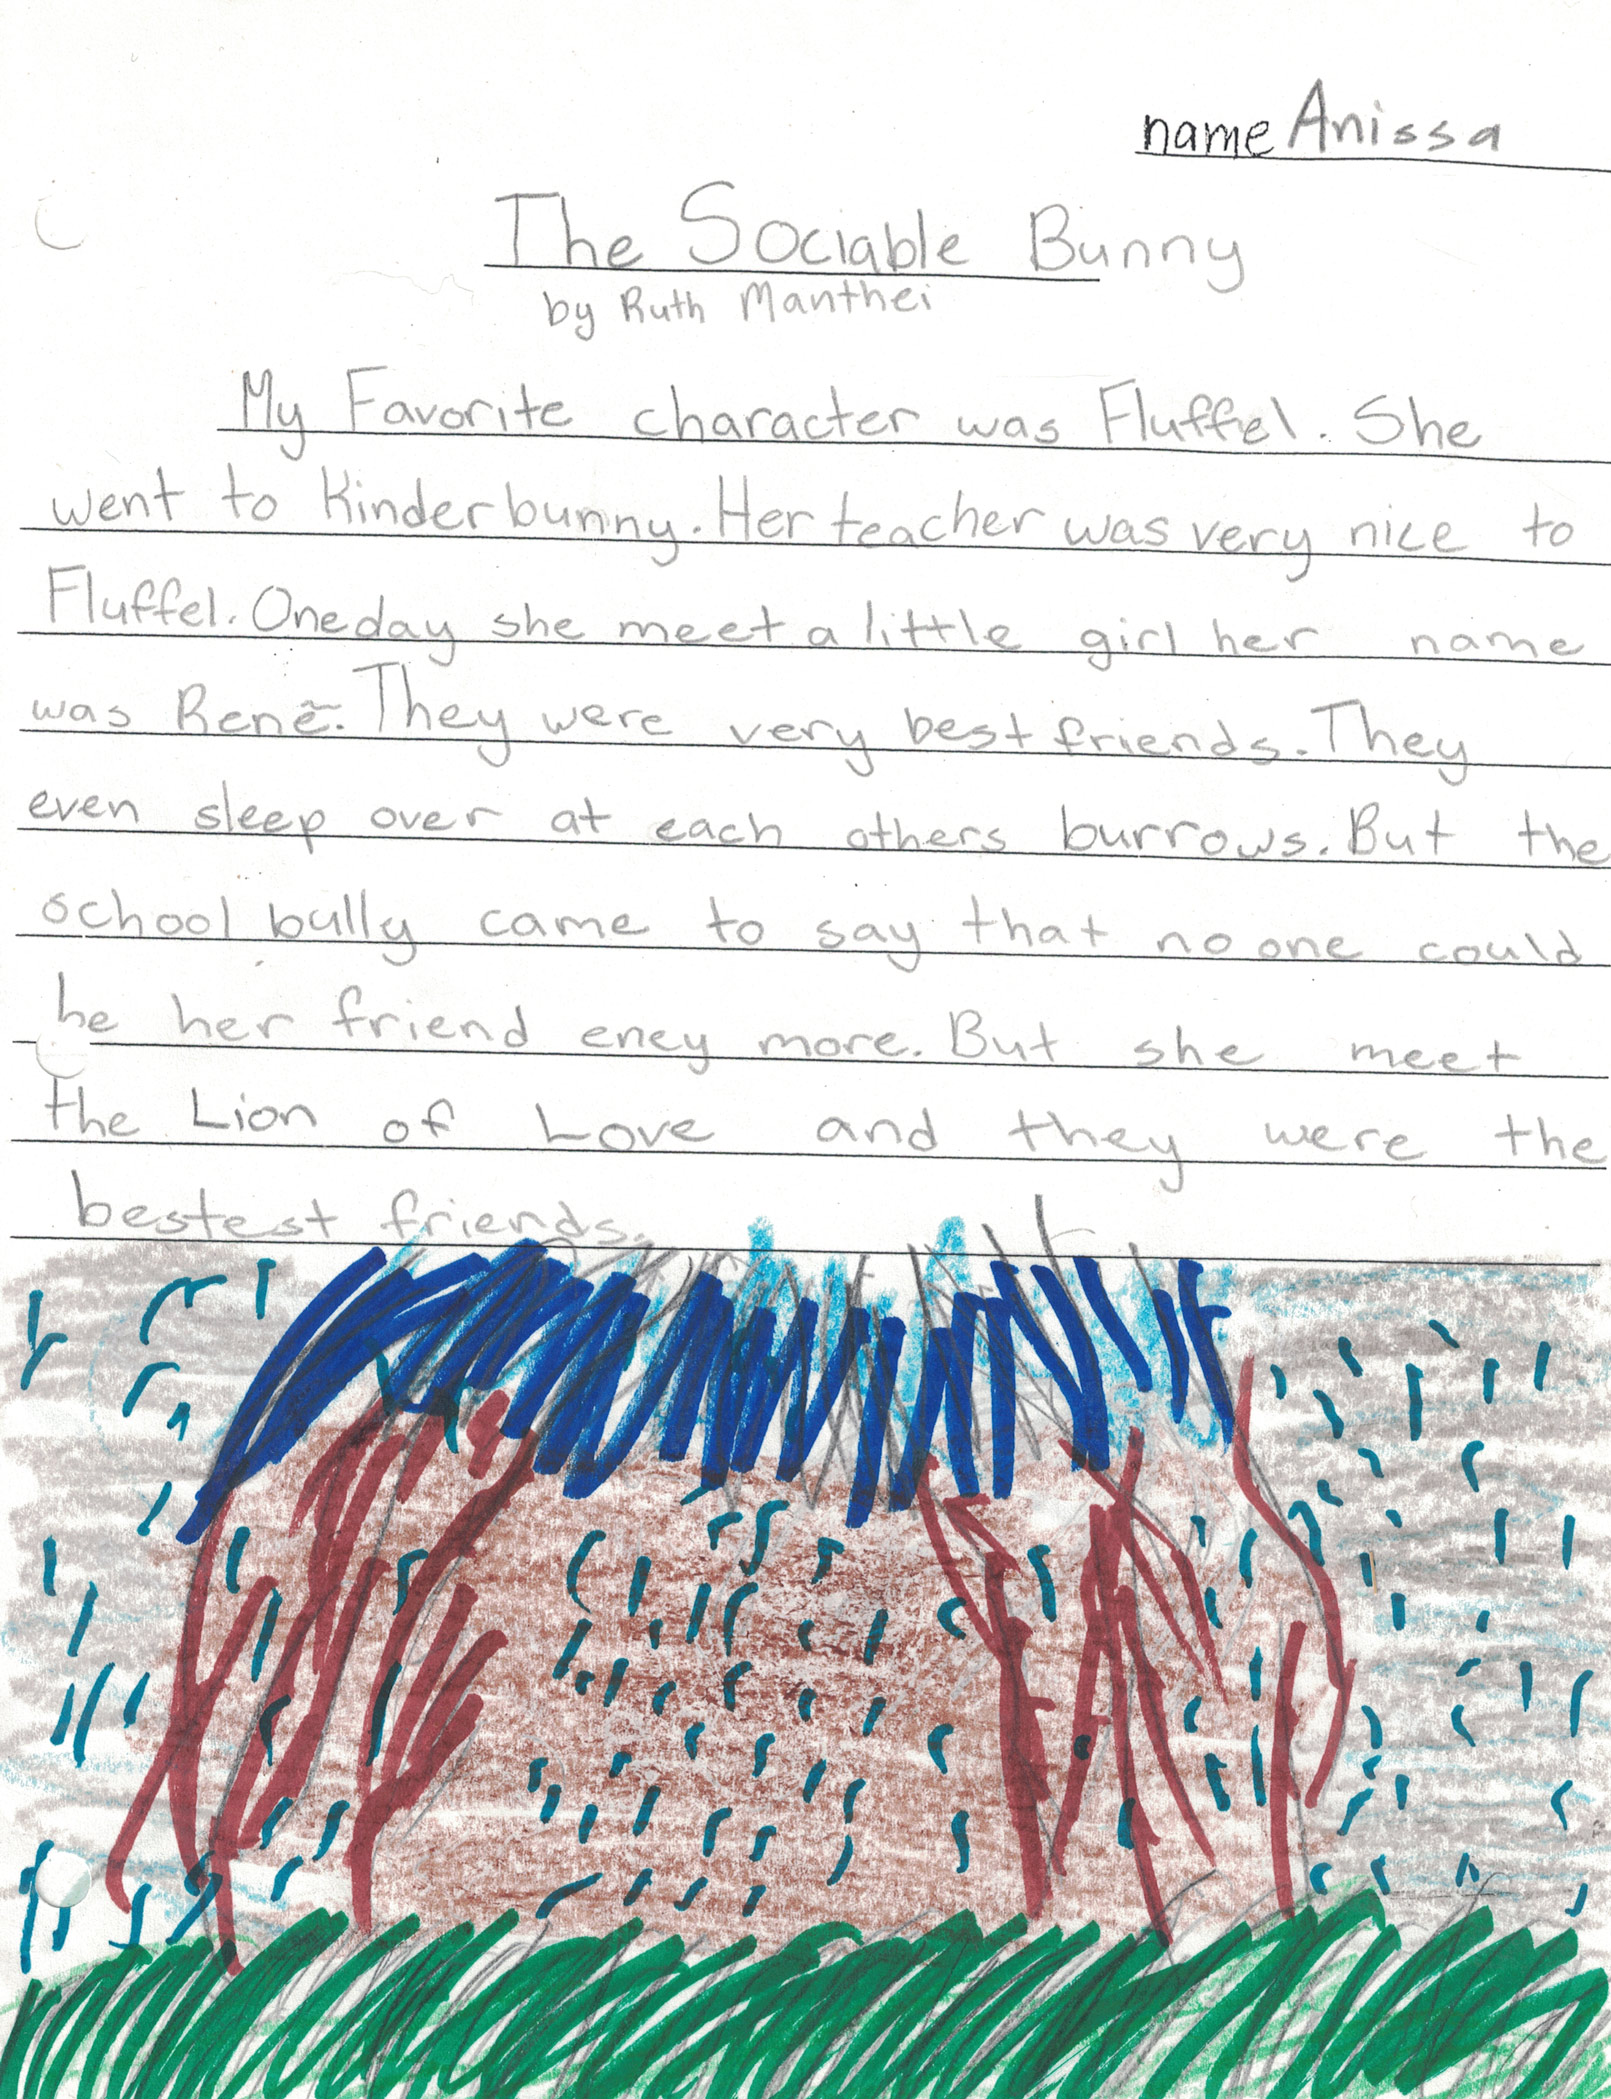 name Anissa
The Sociable Bunny
by Ruth Manthei
My Favorite character was Fluffel. She
went to Kinderbunny. Her teacher was very nice to
Fluffel. One day she meet a little girl her name
was Renẽ. They were very best friends. They
even sleep over at each others burrows. But the
school bully came to say that no one could
be her friend eney more. But she meet
the Lion of Love and they were the
bestest friends.